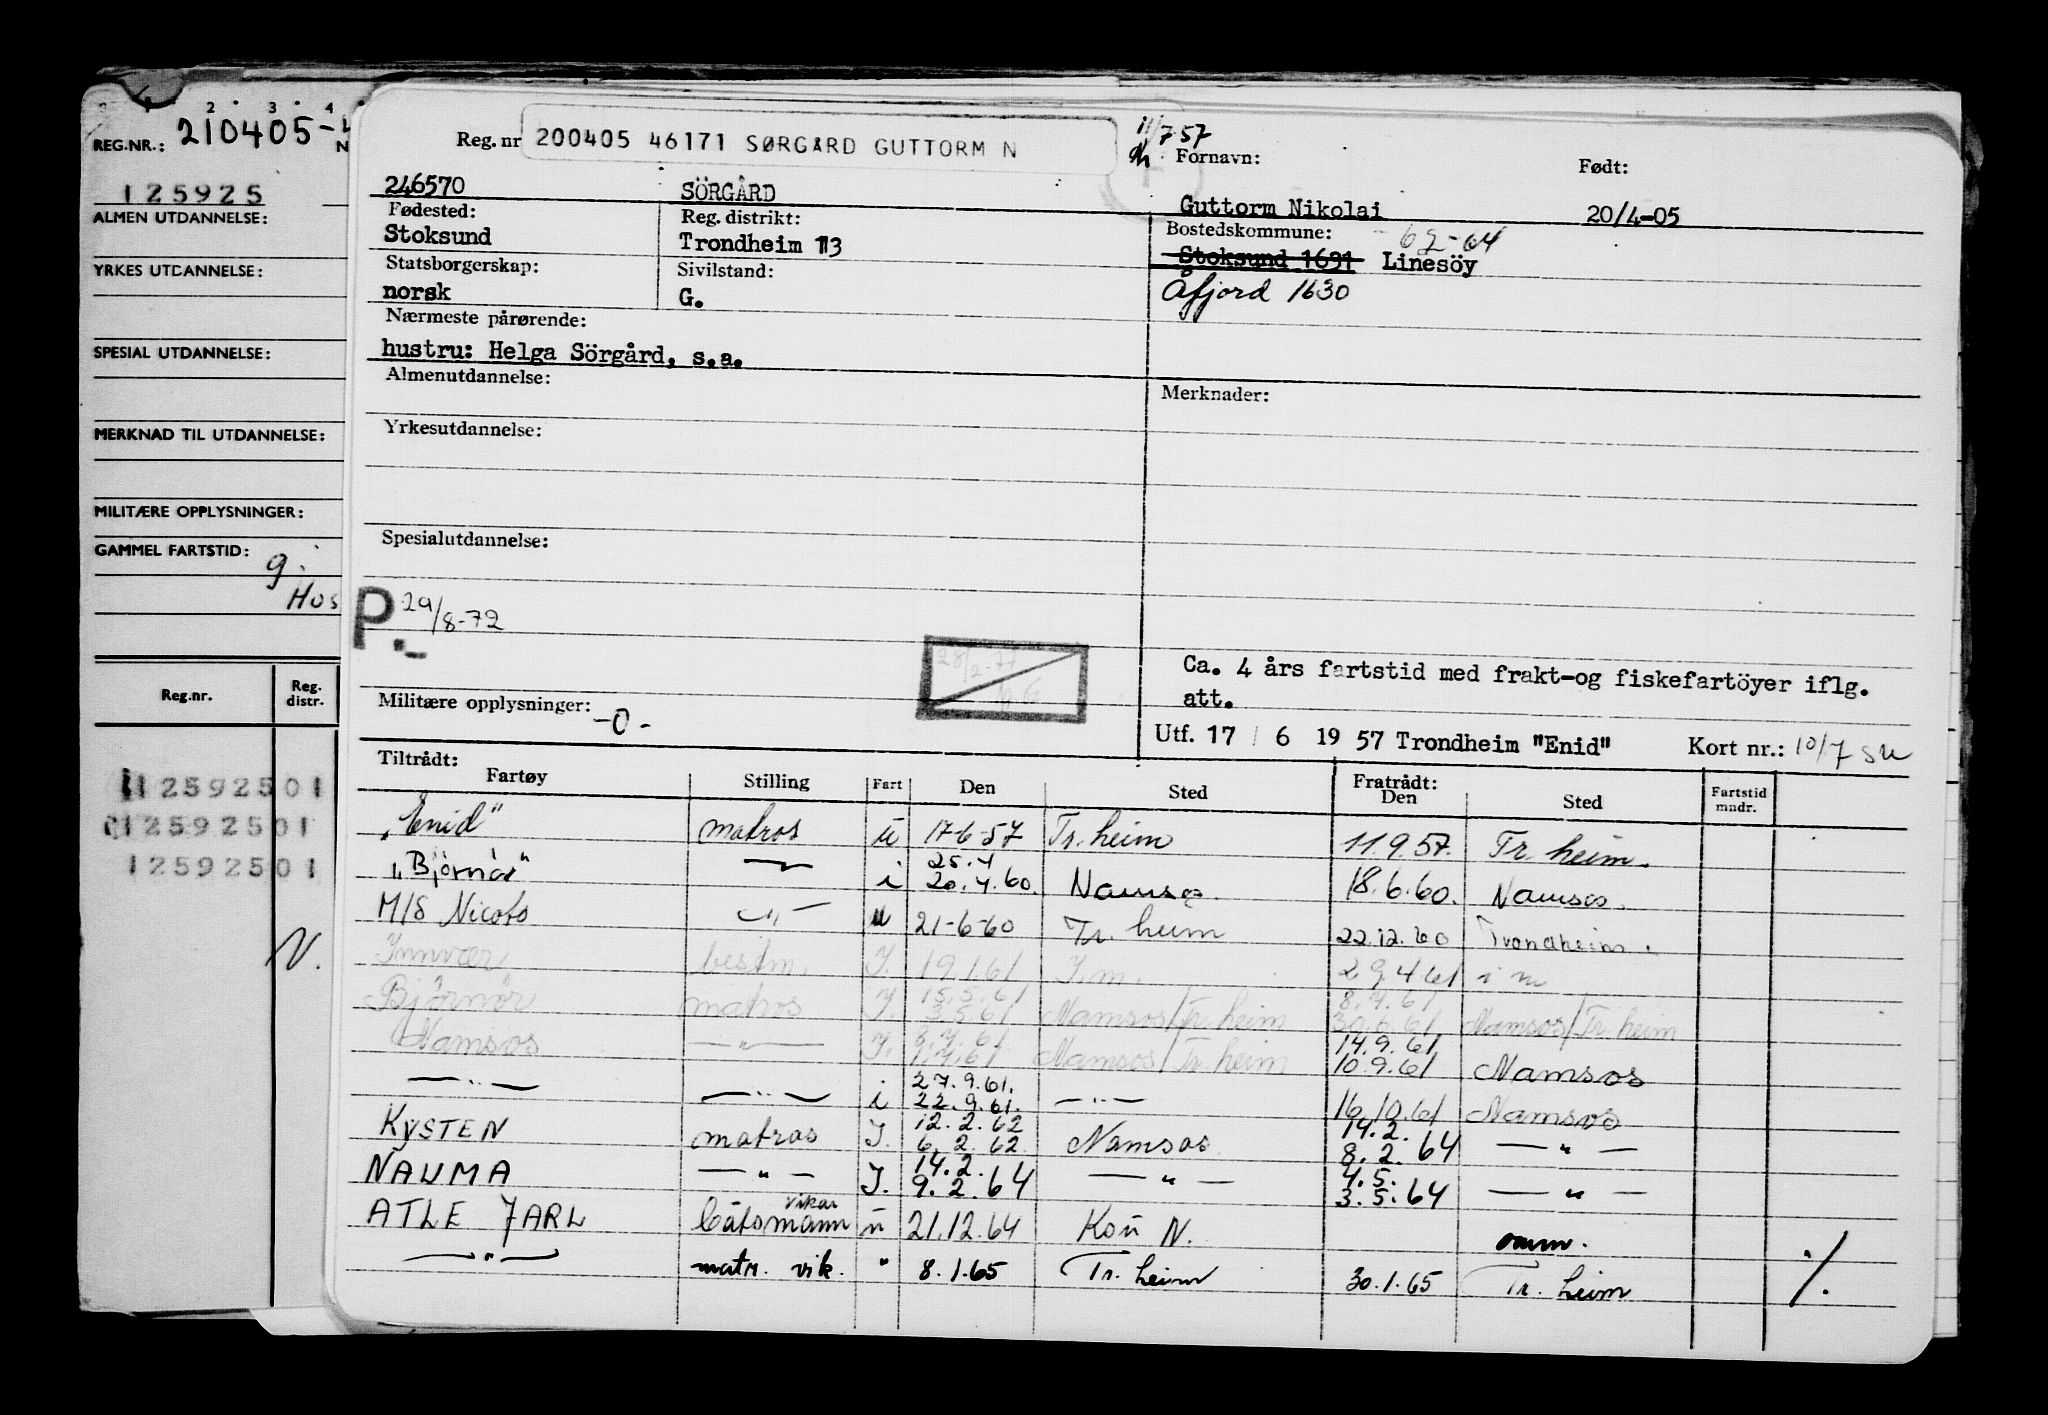 REG.NR.: 210405-
125925
ALMEN UTDANNELSE:
YRKES UTDANNELSE:
SPESIAL UTDANNELSE:
MERKNAD TIL UTDANNELSE:
MILITÆRE OPPLYSNINGER:
GAMMEL FARTSTID: g.
Hos
Reg.nr. Reg. distr.
12592501
12592501
12592501
N.
Reg. nr 200405 46171 SØRGÅRD GUTTORM N
11/7-57
Fornavn: Født:
246570 SÖRGÅRD Guttorm Nikolai 20/4-05
Fødested: Reg. distrikt: Bostedskommune: 62-64
Stoksund Trondheim 113 Stoksund 1631 Linesöy
Statsborgerskap: Sivilstand: Åfjord 1630
norsk G.
Nærmeste pårørende:
hustru: Helga Sörgård, s.a.
Almenutdannelse: Merknader:
Yrkesutdannelse:
Spesialutdannelse:
P. 29/8-72
28/2-77
Ca. 4 års fartstid med frakt-og fiskefartöyer iflg.
att.
Militære opplysninger: -0-
Utf. 17 / 6 19 57 Trondheim "Enid" Kort nr.: 10/7
Tiltrådt: Fratrådt:
Fartøy Stilling Fart Den Sted Den Sted Fartstid mndr.
"Enid" matros u 17-6-57 Tr. heim 11.9.57. Tr. heim.
25.4
"Björnör" —"— i 20.4.60. Namsos 18.6.60. Namsos.
M/S Nicoto —"— u 21-6-60 Tr. heim 22.12.60 Trondheim.
Innvær bestm. I. 19.1.61 I.m. 29.4.61 i m
15.5.61 8.7.61
Björnör matros I. 3.5.61 Namsos/Tr. heim 30.6.61 Namsos/Tr. heim
8.7.61 14.9.61
Namsos —"— I. 1.7.61 Namsos/Tr. heim 10.9.61 Namsos
27.9.61.
—"— —"— i 22.9.61. —"— 16.10.61 Namsos
12.2.62 14.2.
KYSTEN matros I. 6.2.62 Namsos 8.2.64 —"—
14.2. 4.5.
NAUMA —"— I. 9.2.64 —"— 3.5.64 —"—
vikar
ATLE JARL båtsmann u 21.12.64 Kou N. omm.
—"— matr. vik. " 8.1.65 Tr. heim 30.1.65 Tr. heim ./.